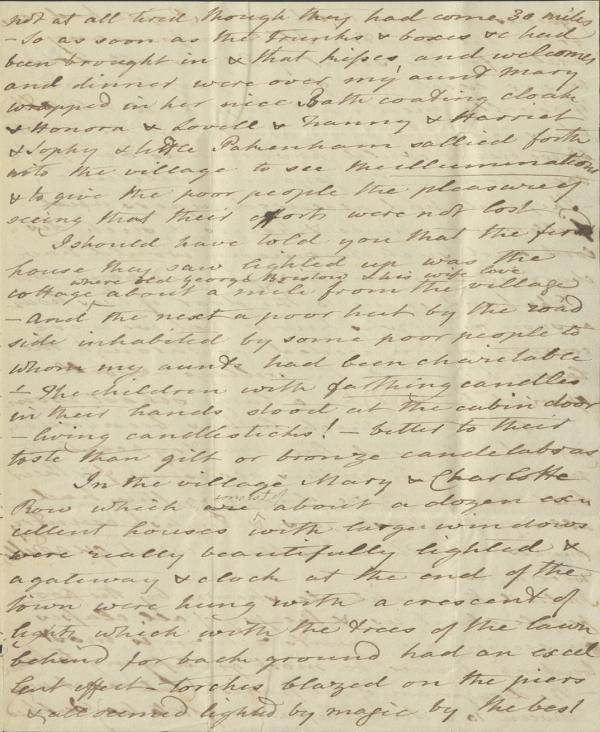 not at all tired though they had come 30 miles
– So as soon as the Trunks & boxes &c had
been brought in & that kisses and welcomes
and dinner were over my aunt Mary
wrapped in her nice Bath coating cloak
& Honora & Lovell & Fanny & Harriet
& Sophy & little Pakenham sallied forth
into the village to see the illuminations
& to give the poor people the pleasure of
seeing that their efforts were not lost
I should have told you that the first
house they saw lighted up was the
where old George Bristow & his wife love
cottage about a mile from the village
– And the next a poor hut by the road
side inhabited by some poor people to
whom my aunts had been charitable
– The children with farthing candles
in their hands stood at the cabin door
– living candlesticks! – better to their
taste than gilt or bronze candelabras
In the village Mary & Charlotte
Row which are about a dozen ex
cellent houses with large windows
were really beautifully lighted &
a gateway & clock at the end of the
town were hung with a crescent of
lights which with the trees of the lawn
behind for back ground had an excel
lent effect – torches blazed on the piers
& all seemed lighted by magic by the best